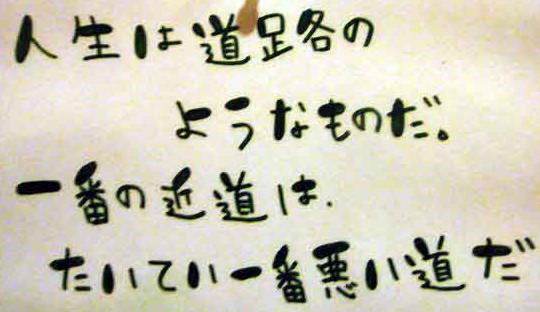 人生は道路の
ようなものだ。
一番の近道は.
たいてい一番悪い道だ